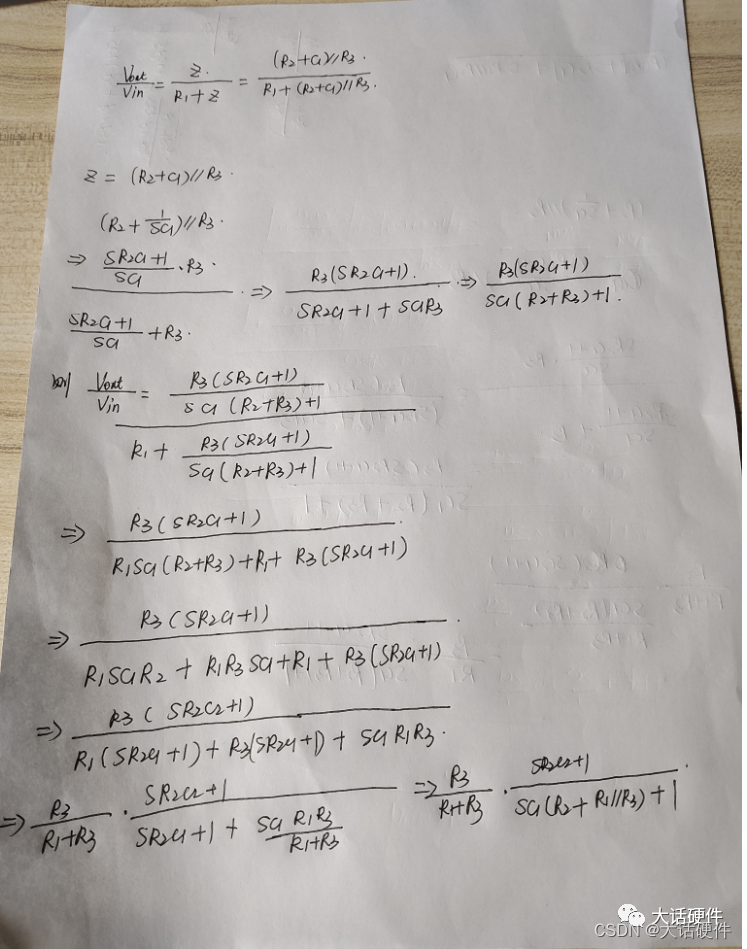 Vout/Vin = Z/(R1+Z) = ((R2+C1)//R3)/(R1+(R2+C1)//R3).
Z = (R2+C1)//R3.
(R2 + 1/SC1)//R3.
⇒ ((SR2C1+1)/SC1 · R3)/((SR2C1+1)/SC1 + R3) ⇒ R3(SR2C1+1)/(SR2C1+1+SC1R3) ⇒ R3(SR2C1+1)/(SC1(R2+R3)+1).
则 Vout/Vin = (R3(SR2C1+1)/(SC1(R2+R3)+1))/(R1 + R3(SR2C1+1)/(SC1(R2+R3)+1))
⇒ R3(SR2C1+1)/(R1SC1(R2+R3)+R1+R3(SR2C1+1))
⇒ R3(SR2C1+1)/(R1SC1R2+R1R3SC1+R1+R3(SR2C1+1))
⇒ R3(SR2C2+1)/(R1(SR2C1+1)+R3(SR2C1+1)+SC1R1R3).
⇒ R3/(R1+R3) · (SR2C2+1)/(SR2C1+1+SC1R1R3/(R1+R3)) ⇒ R3/(R1+R3) · (SR2C2+1)/(SC1(R2+R1//R3)+1).
大话硬件
CSDN @大话硬件